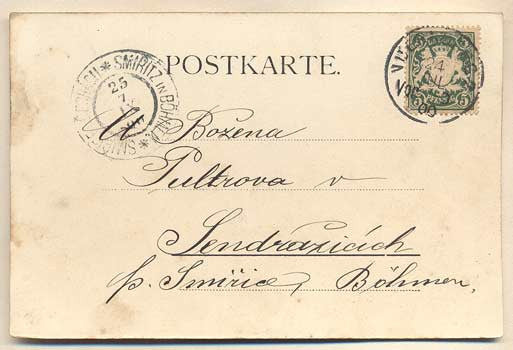 POSTKARTE.
SMIRITZ IN BÖHMEN
25
7
Božena
Pultrova v
Sendražicích
p. Smiřice, Böhmen.